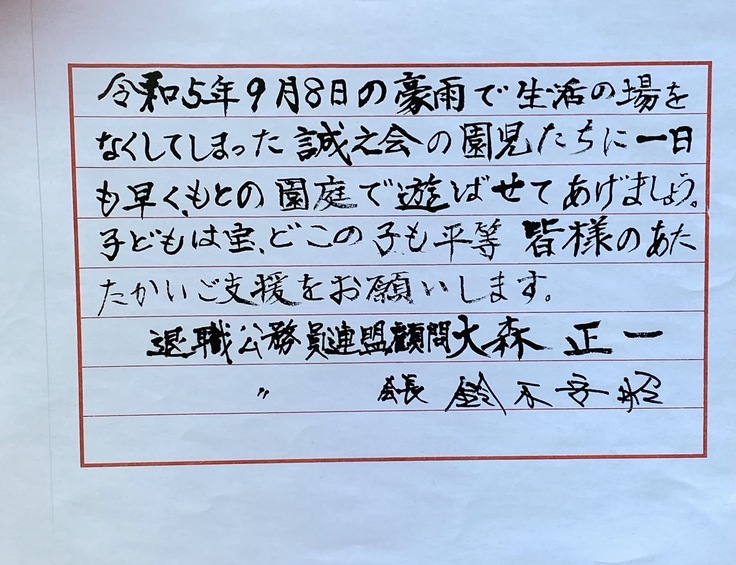 令和5年9月8日の豪雨で生活の場を
なくしてしまった誠之会の園児たちに一日
も早く、もとの園庭で遊ばせてあげましょう。
子どもは宝、どこの子も平等 皆様のあた
たかいご支援をお願いします。
退職公務員連盟顧問大森 正一
〃 会長 鈴木